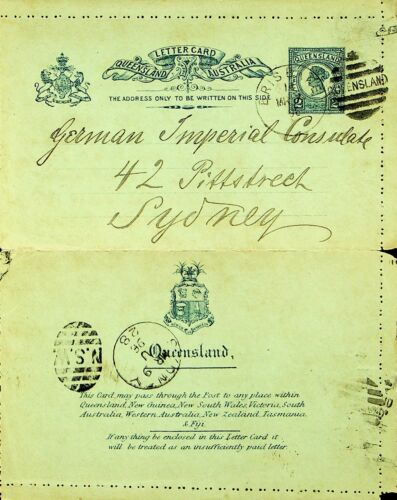 LETTER CARD
QUEENSLAND AUSTRALIA
THE ADDRESS ONLY TO BE WRITTEN ON THIS SIDE.
QUEENSLAND
QUEENSLAND
German Imperial Consulate
42 Pittstreet
Sydney
N.S.W
Queensland,
This Card may pass through the Post to any place within
Queensland, New Guinea, New South Wales, Victoria, South
Australia, Western Australia, New Zealand, Tasmania
& Fiji.
If anything be enclosed in this Letter Card it
will be treated as an insufficiently paid letter.